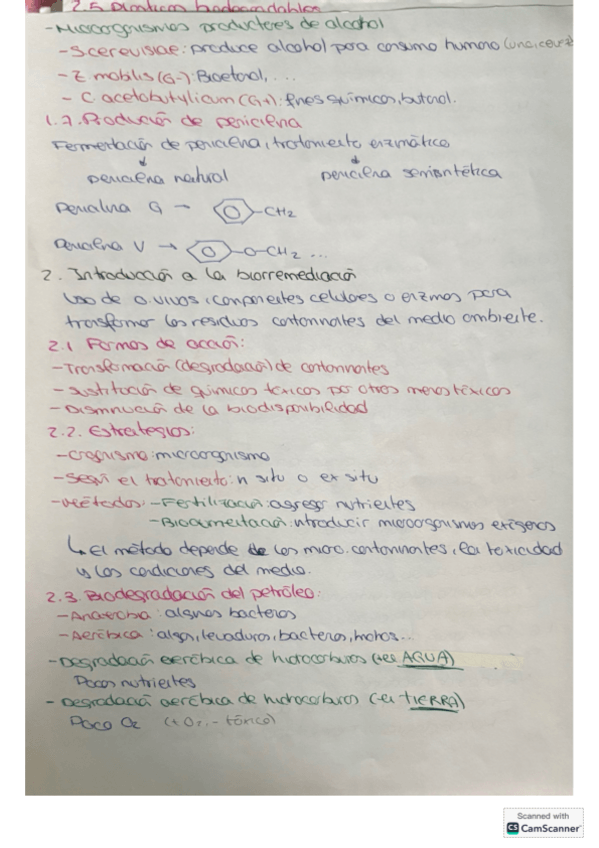 2.5. Plásticos biodegradables
- Microorganismos productores de alcohol
- S cerevisiae: produce alcohol para consumo humano
- Z mobilis (G-): Bioetanol, ...
- C acetobutylicum (G+): fines químicos, butanol.
1.7. Producción de penicilina
Fermentación de penicilina, tratamiento enzimático
penicilina natural penicilina semisintética
Penicilina G → -CH2
Penicilina V → -O-CH2 ...
2. Introducción a la biorremediación
Uso de o. vivos, componentes celulares o enzimas para
transformar los residuos contaminantes del medio ambiente.
2.1 Formas de acción:
- Transformación (degradación) de contaminantes
- Sustitución de químicos tóxicos por otros menos tóxicos
- Disminución de la biodisponibilidad
2.2. Estrategias:
- Organismo: microorganismo
- Según el tratamiento: in situ o ex situ
- Métodos: - Fertilización: agregar nutrientes
- Bioaumentación: introducir microorganismos exógenos
↳ El método depende de los micro. contaminantes, la toxicidad
y las condiciones del medio.
2.3. Biodegradación del petróleo:
- Anaerobia: algunas bacterias
- Aeróbica: algas, levaduras, bacterias, mohos...
- Degradación aeróbica de hidrocarburos (en AGUA)
Pocos nutrientes
- Degradación aeróbica de hidrocarburos (en TIERRA)
Poco O2 (+ O2, - tóxico)
Scanned with
CS CamScanner